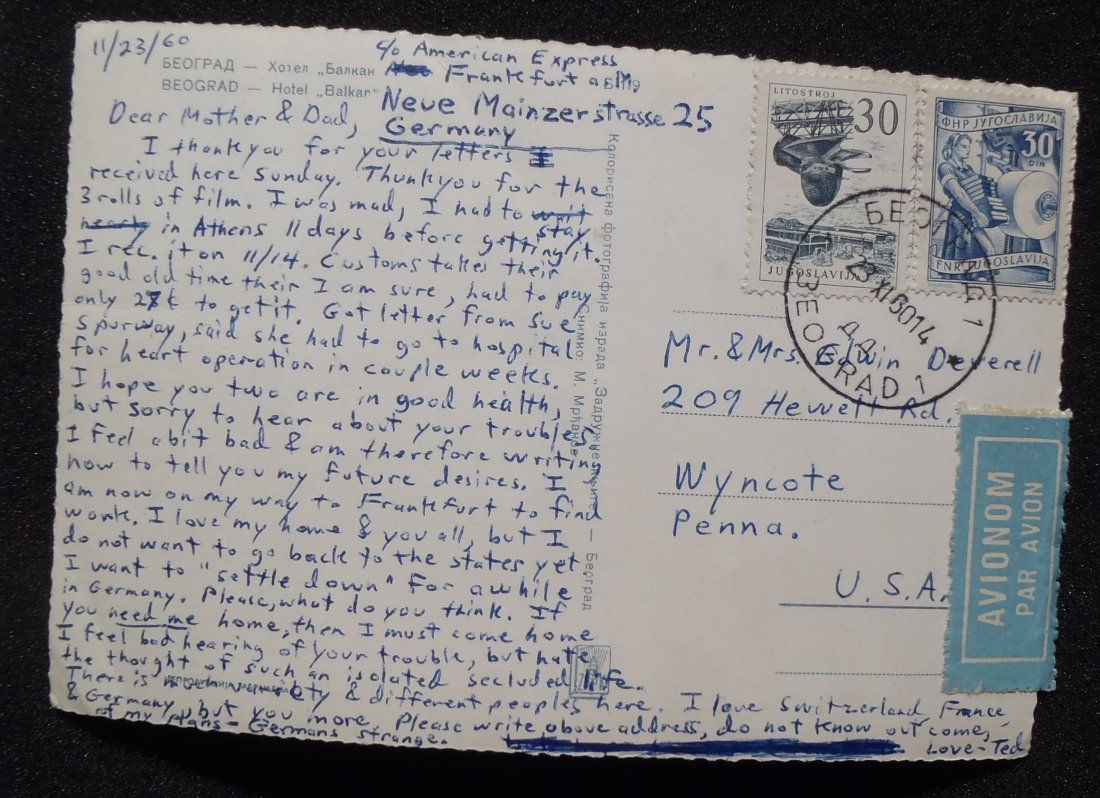 11/23/60
c/o American Express
Frankfurt a/M
Neue Mainzerstrasse 25
Germany
БЕОГРАД — Хотел „Балкан"
BEOGRAD — Hotel „Balkan"
Dear Mother & Dad,
I thankyou for your letters
received here Sunday. Thankyou for the
3 rolls of film. I was mad, I had to wait stay
in Athens 11 days before getting it.
I rec. it on 11/14. Customs takes their
good old time their I am sure, had to pay
only 27¢ to get it. Got letter from Sue
Spurway, said she had to go to hospital
for heart operation in couple weeks.
I hope you two are in good health,
but sorry to hear about your troubles.
I feel abit bad & am therefore writing
now to tell you my future desires. I
am now on my way to Frankfurt to find
work. I love my home & you all, but I
do not want to go back to the states yet
I want to "settle down" for awhile
in Germany. Please, what do you think. If
you need me home, then I must come home
I feel bad hearing of your trouble, but hate
the thought of such an isolated secluded life.
There is variety & different peoples here. I love Switzerland, France,
& Germany, but you more. Please write above address, do not know out come,
of my plans - Germans strange.
Love - Ted
Колорисана фотографија израда „Задружне књиге" — Београд
Снимио: М. Мрђанов
LITOSTROJ
30
JUGOSLAVIJA
ФНР ЈУГОСЛАВИЈА
30
DIN
FNR JUGOSLAVIJA
БЕОГРАД 1
23 XI 60 14
BEOGRAD 1
Mr. & Mrs. Edwin Deverell
209 Hewett Rd.
Wyncote
Penna.
U.S.A.
AVIONOM
PAR AVION